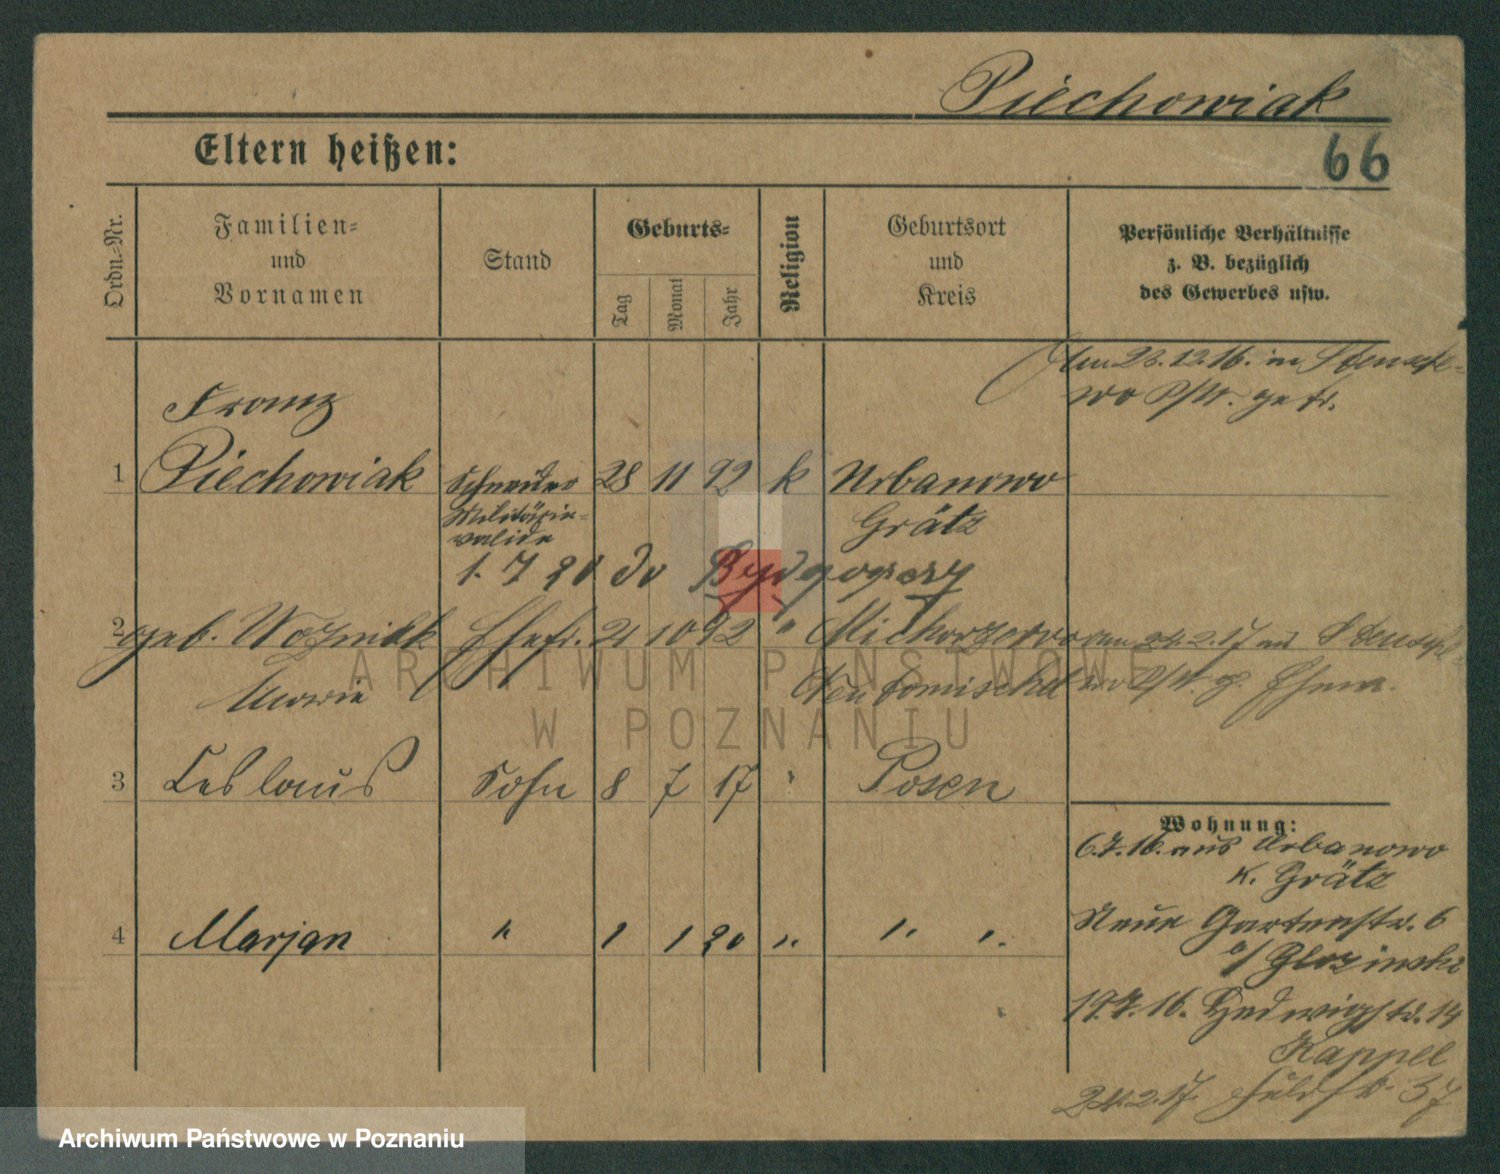 Piechowiak
Eltern heißen:
66
Ordn.-Nr.
Familien-
und
Vornamen
Stand
Geburts-
Tag
Monat
Jahr
Religion
Geburtsort
und
Kreis
Persönliche Verhältnisse
z. B. bezüglich
des Gewerbes usw.
Am 26.12.16. in Stensche-
wo P/W. getr.
Franz
1 Piechowiak Schneider 28 11 92 k Urbanowo
Militärin-
valide
Grätz
1. 7 20 do Bydgoszcz
2 geb. Wozniak Ehefr. 21 10 92 " Michorzewo am 24.2.17 aus Stensche-
Marie Neutomischel wo P/W. z. Ehem.
3 Ceslaus Sohn 8 7 17 " Posen
Wohnung:
6.7.16. aus Urbanowo
K. Grätz
4 Marjan " 1 1 20 " " "
Neue Gartenstr. 6
b/ Glozinski
19.7.16. Hedwigstr. 14
Kappel
24.2.17. Feldstr. 37
ARCHIWUM PAŃSTWOWE
W POZNANIU
Archiwum Państwowe w Poznaniu